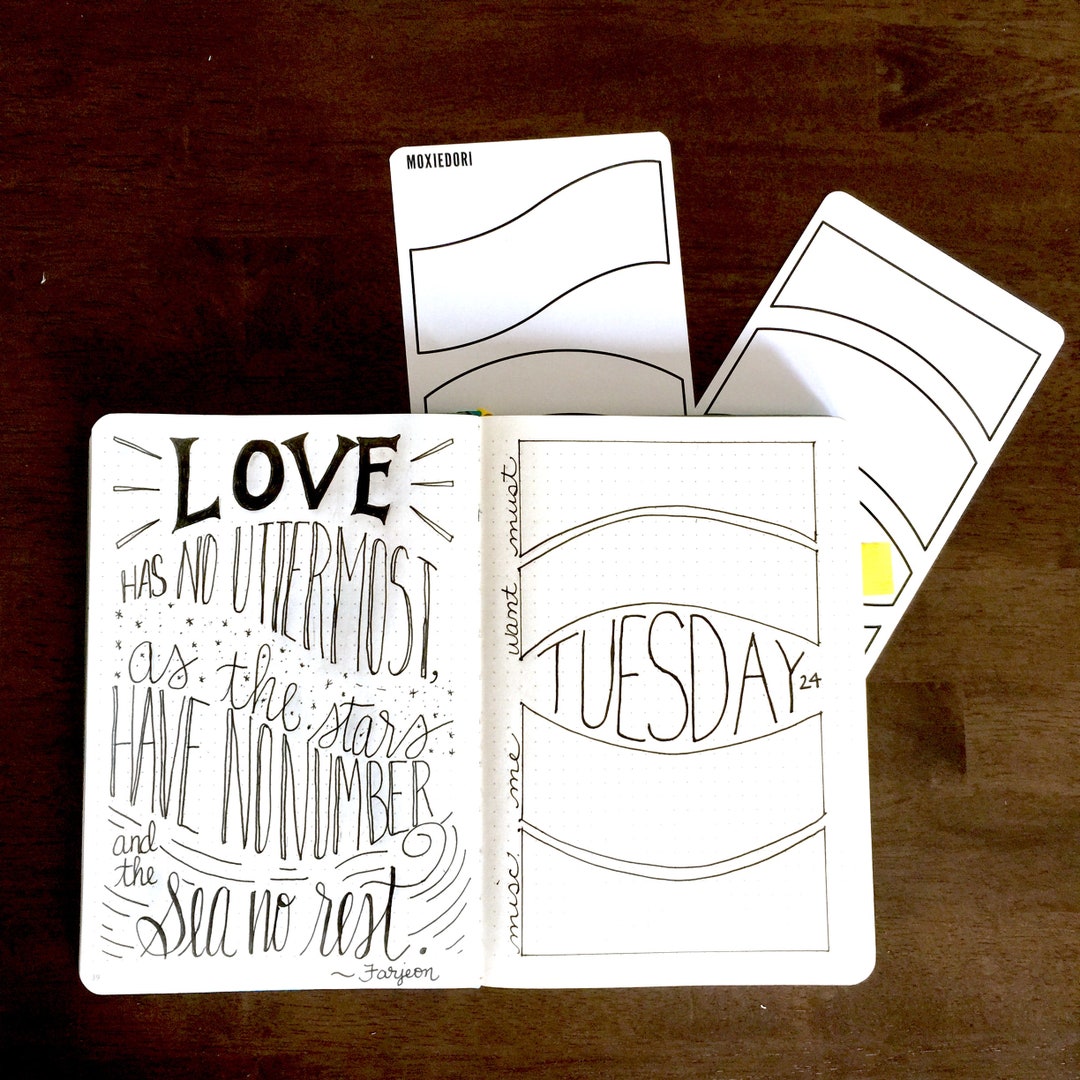 MOXIEDORI
LOVE
HAS NO UTTERMOST,
as the stars
HAVE NO NUMBER
and
the
Sea no rest.
~ Farjeon
must
want
TUESDAY 24
me
misc.